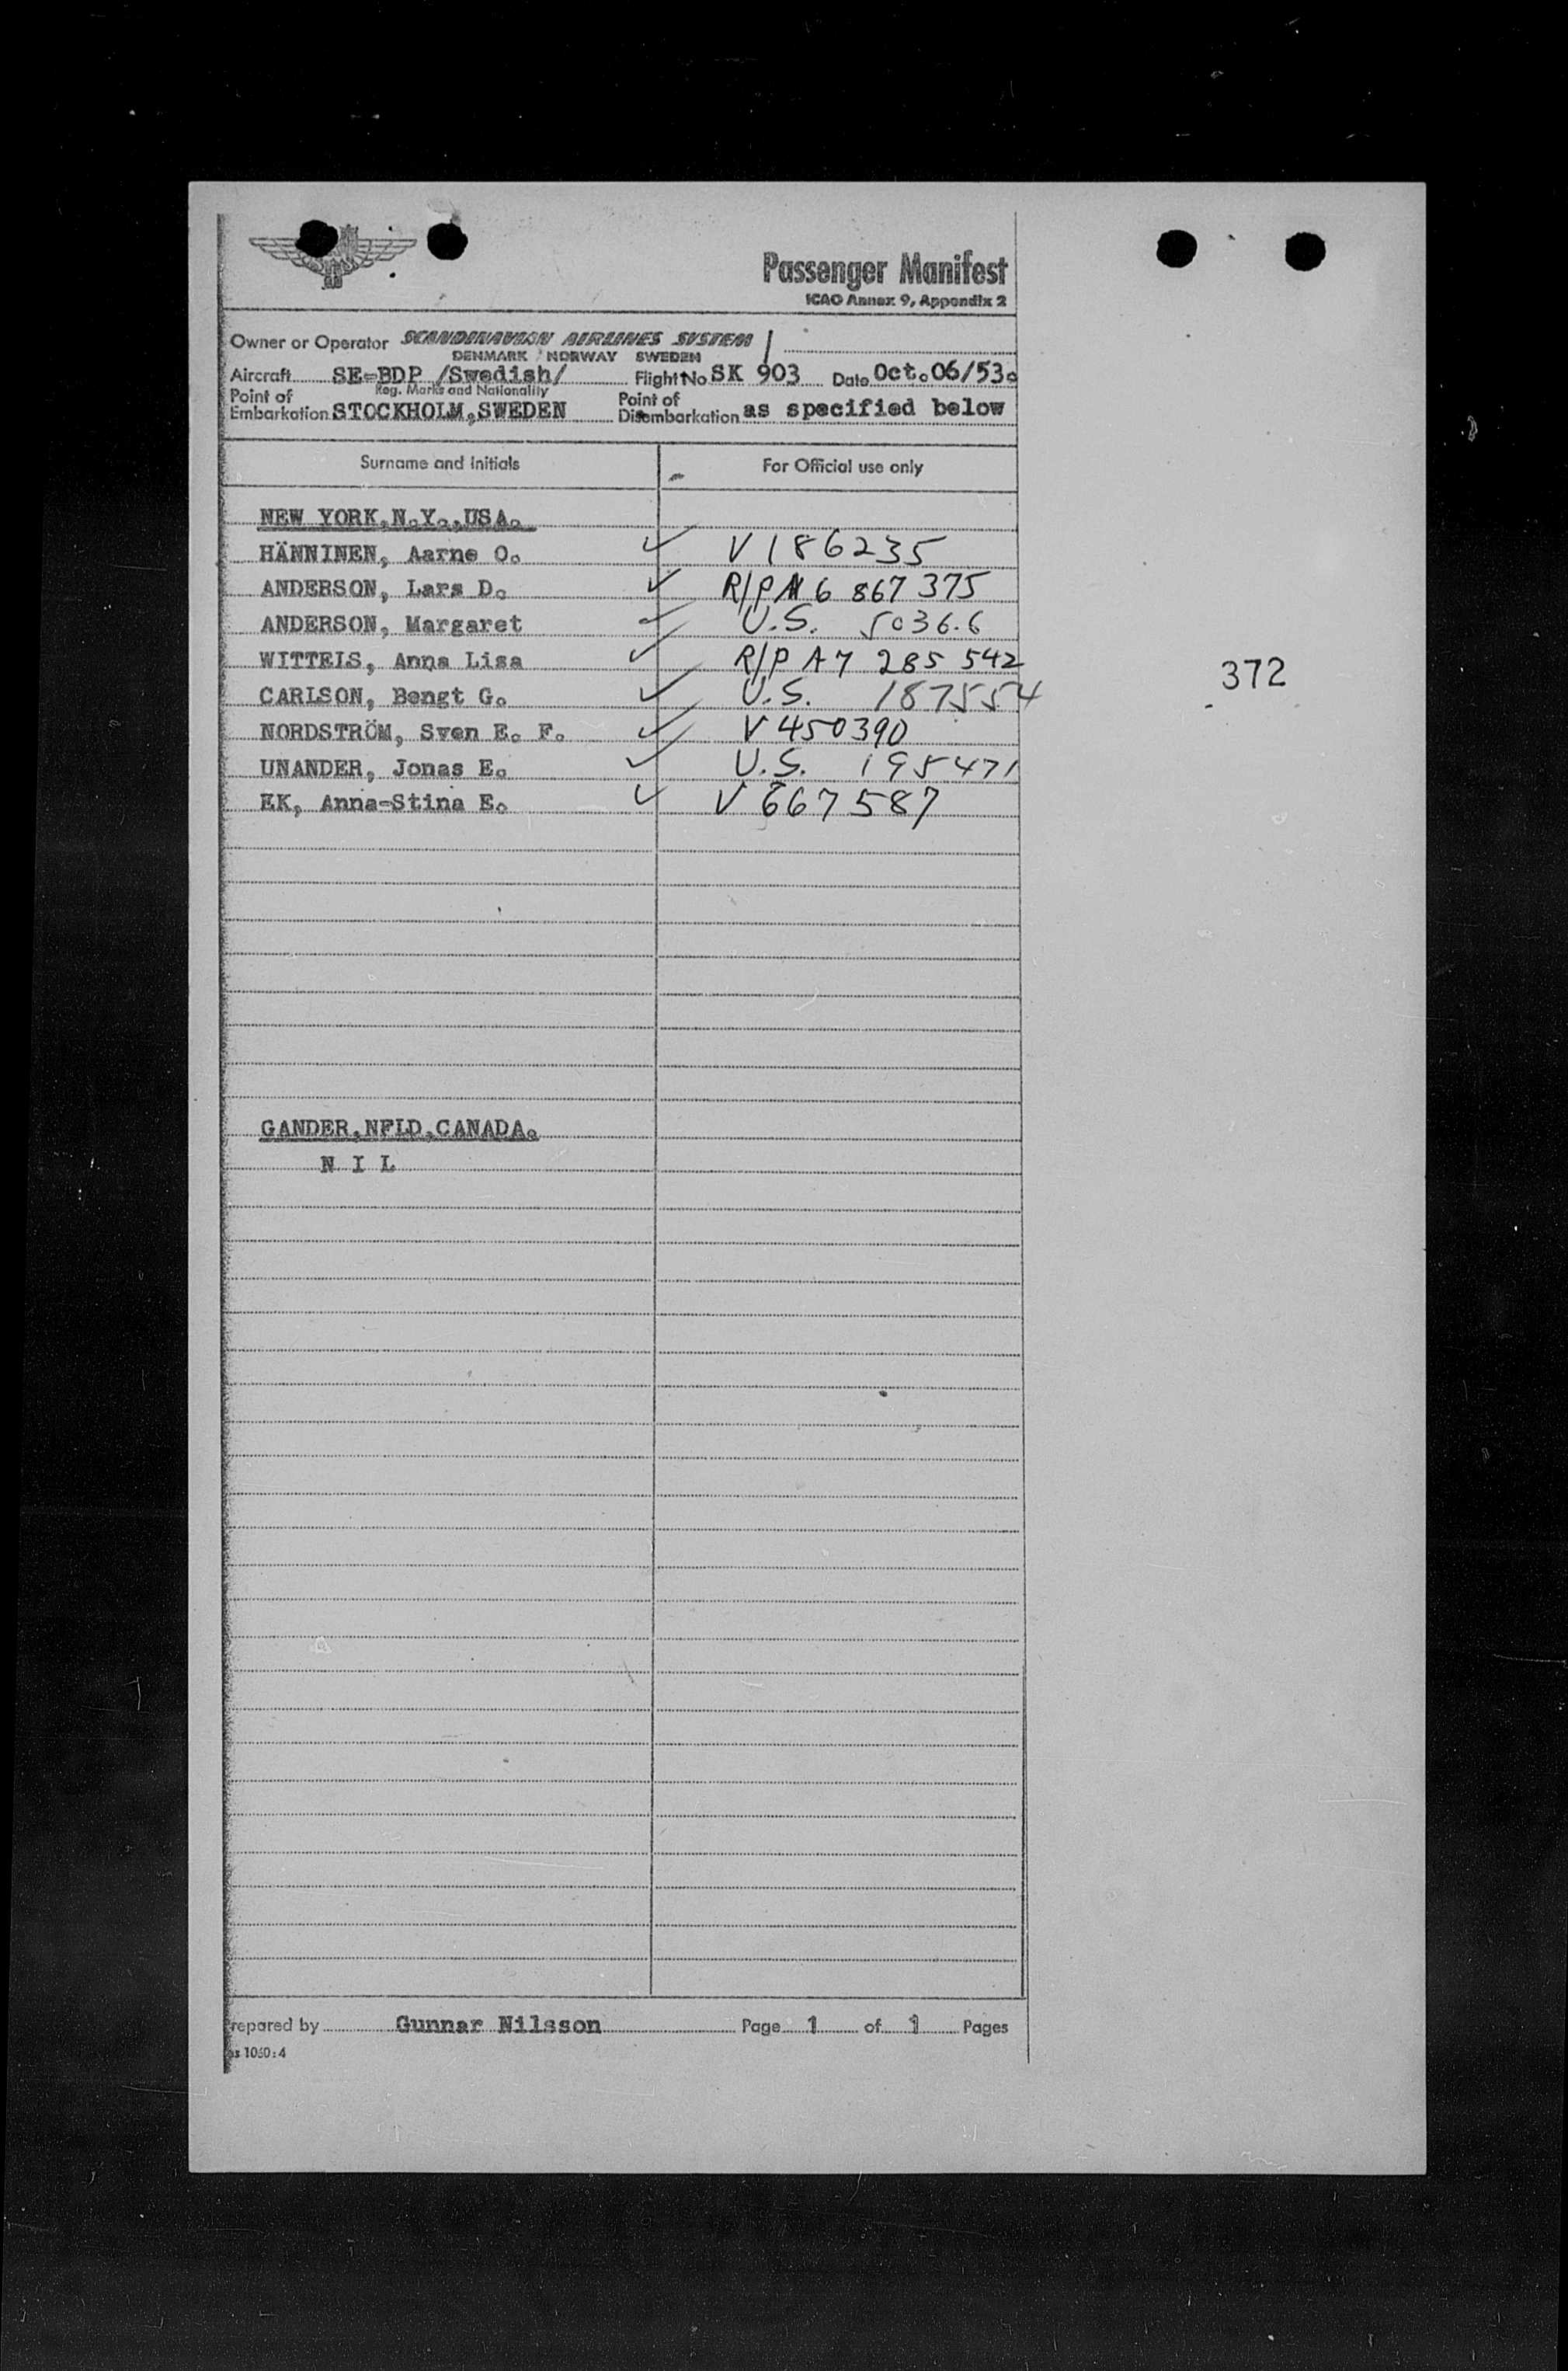 Passenger Manifest
ICAO Annex 9, Appendix 2
Owner or Operator SCANDINAVIAN AIRLINES SYSTEM
DENMARK NORWAY SWEDEN
Aircraft SE-BDP /Swedish/ Flight No SK 903 Date Oct. 06/53.
Reg. Marks and Nationality
Point of Embarkation STOCKHOLM, SWEDEN Point of Disembarkation as specified below
Surname and initials For Official use only
NEW YORK, N.Y., USA.
HÄNNINEN, Aarne O. ✓ V 186235
ANDERSON, Lars D. ✓ R/P 6 867 375
ANDERSON, Margaret ✓ U.S. 5036.6
WITTEIS, Anna Lisa ✓ R/P A7 285 542
372
CARLSON, Bengt G. ✓ U.S. 187554
NORDSTRÖM, Sven E. F. ✓ V 450390
UNANDER, Jonas E. ✓ U.S. 195471
EK, Anna-Stina E. ✓ V 667587
GANDER, NFLD, CANADA.
N I L
repared by Gunnar Nilsson Page 1 of 1 Pages